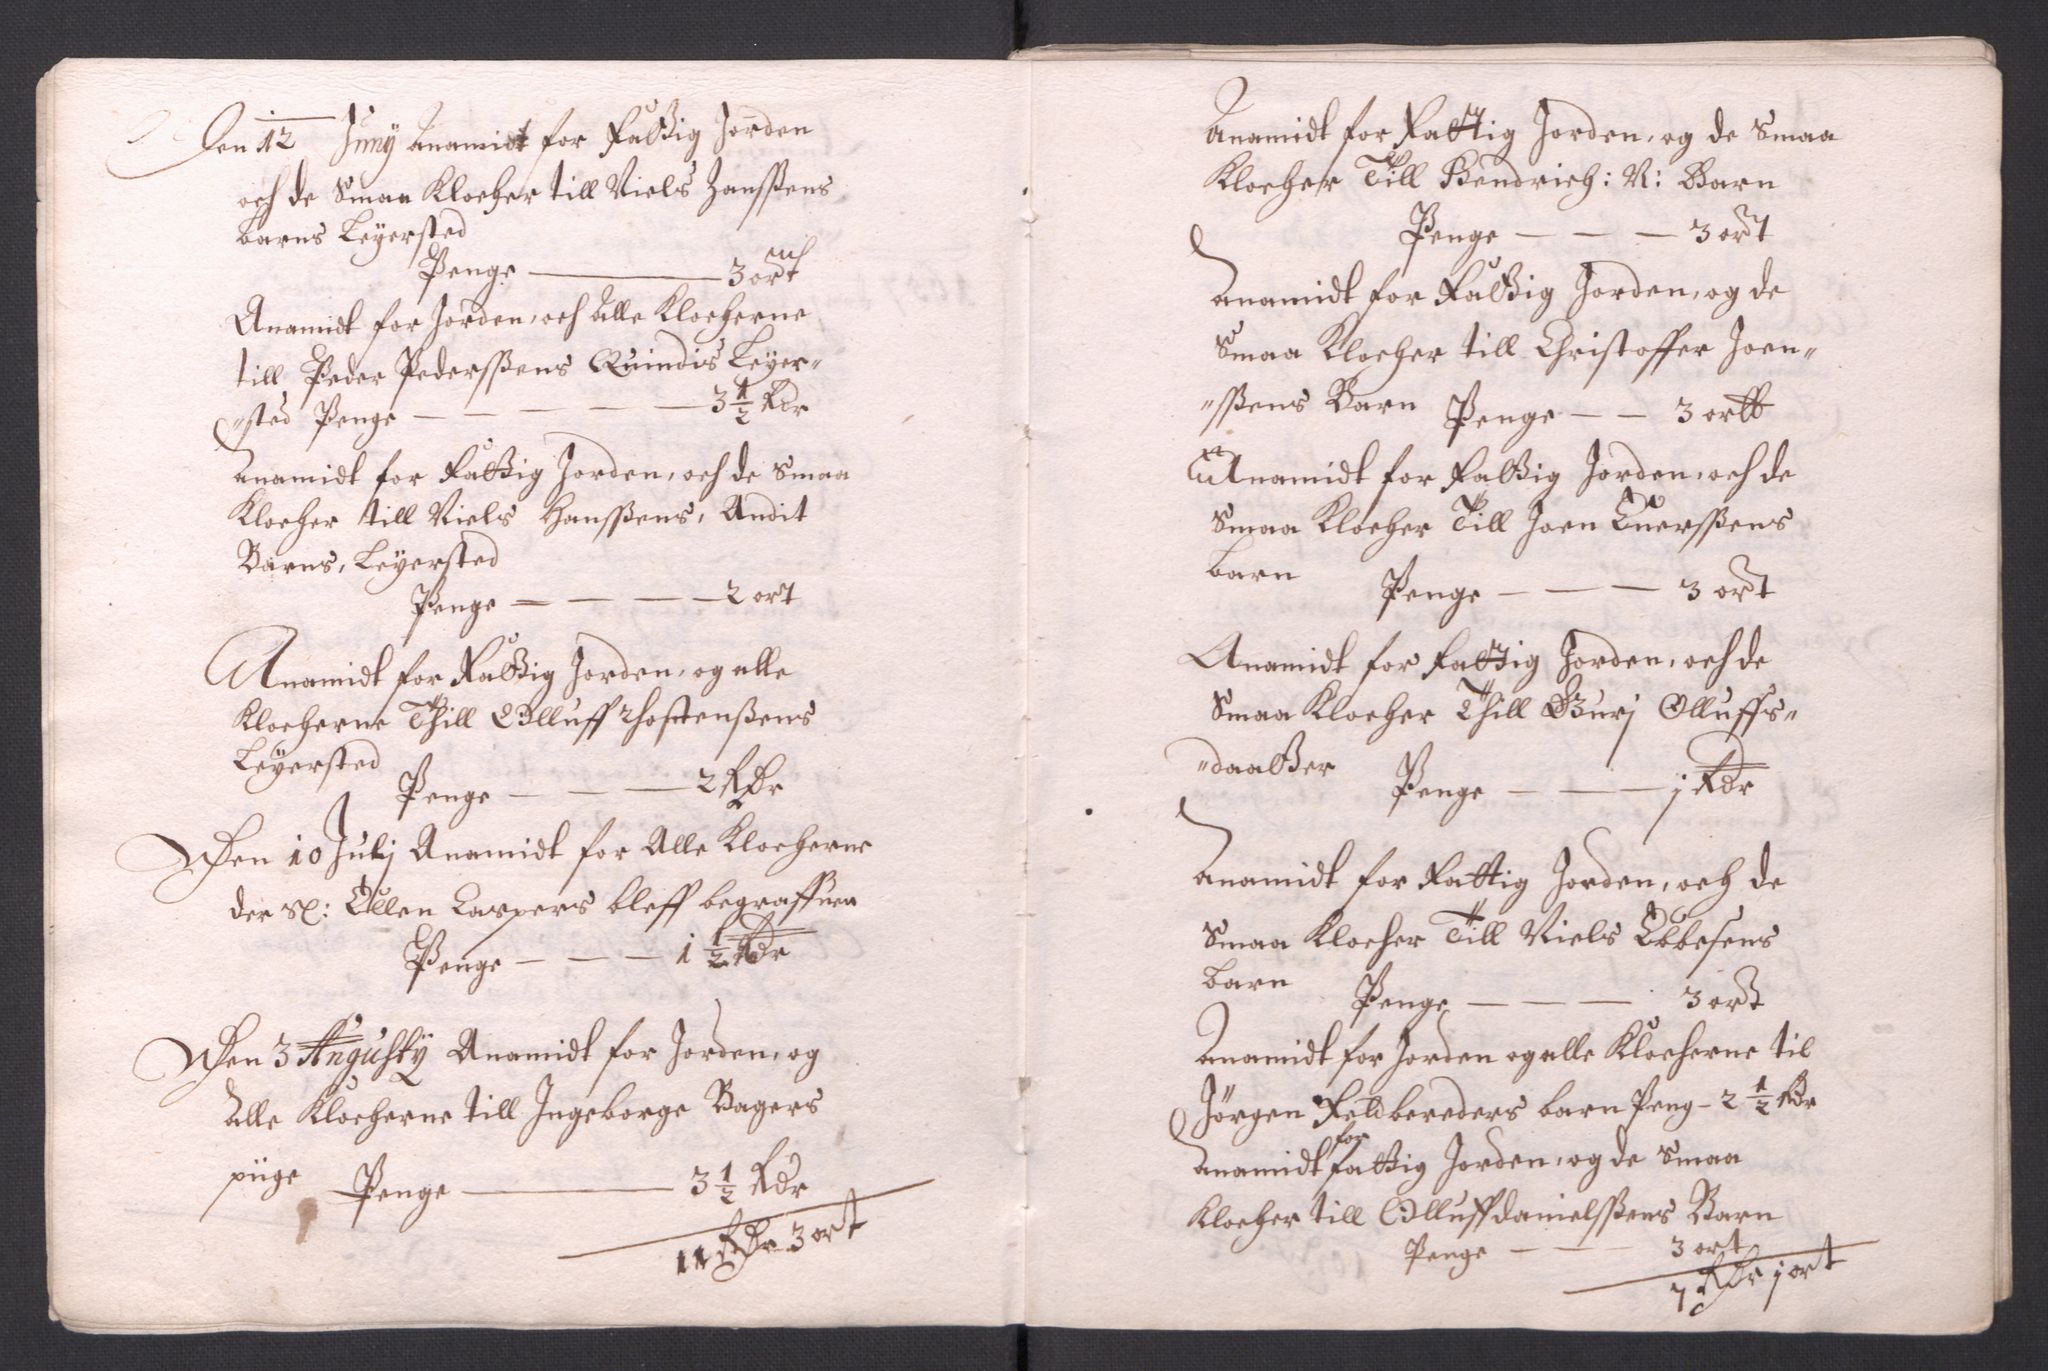 Den 12 Juny Anamidt for Fattig Jorden
och de Smaa Klocher till Niels Hanssens
barns Leyersted
Penge 3 ort
Anamidt for Jorden, och alle Klocherne
till Peder Pederssens Quindis Leyer-
-sted Penge 3 1/2 Rdr
Anamidt for Fattig Jorden, och de Smaa
Klocher till Niels Hanssens, Andit
Barns, Leyersted
Penge 2 ort
Anamidt for Fattig Jorden, og alle
Klocherne Thill Olluff Thostenssens
Leyersted
Penge 2 Rdr
Den 10 Julj Anamidt for Alle Klocherne
der Sl: Ellen Caspers bleff begraffuen
Penge 1 1/2 Rdr
Den 3 Augusty Anamidt for Jorden, og
alle Klocherne till Ingeborge Bagers
piige Penge 3 1/2 Rdr
11 Rdr 3 ort
Anamidt for Fattig Jorden, og de Smaa
Klocher Till Hendrich: N: Barn
Penge 3 ort
Anamidt for Fattig Jorden, og de
Smaa Klocher till Christoffer Joen-
-ssens Barn Penge 3 ort
Anamidt for Fattig Jorden, och de
Smaa Klocher Till Joen Euerssens
barn Penge 3 ort
Anamidt for fattig Jorden, och de
Smaa Klocher Thill Gurj Olluffs-
-daatter Penge j Rdr
Anamidt for Fattig Jorden, och de
Smaa Klocher Till Niels Ebbesens
barn Penge 3 ort
Anamidt for Jorden og alle Klocherne til
Jörgen Feldbereders barn Peng 2 1/2 Rdr
Anamidt for fattig Jorden, og de Smaa
Klocher till Olluff danielssens Barn
Penge 3 ort
7 Rdr j ort